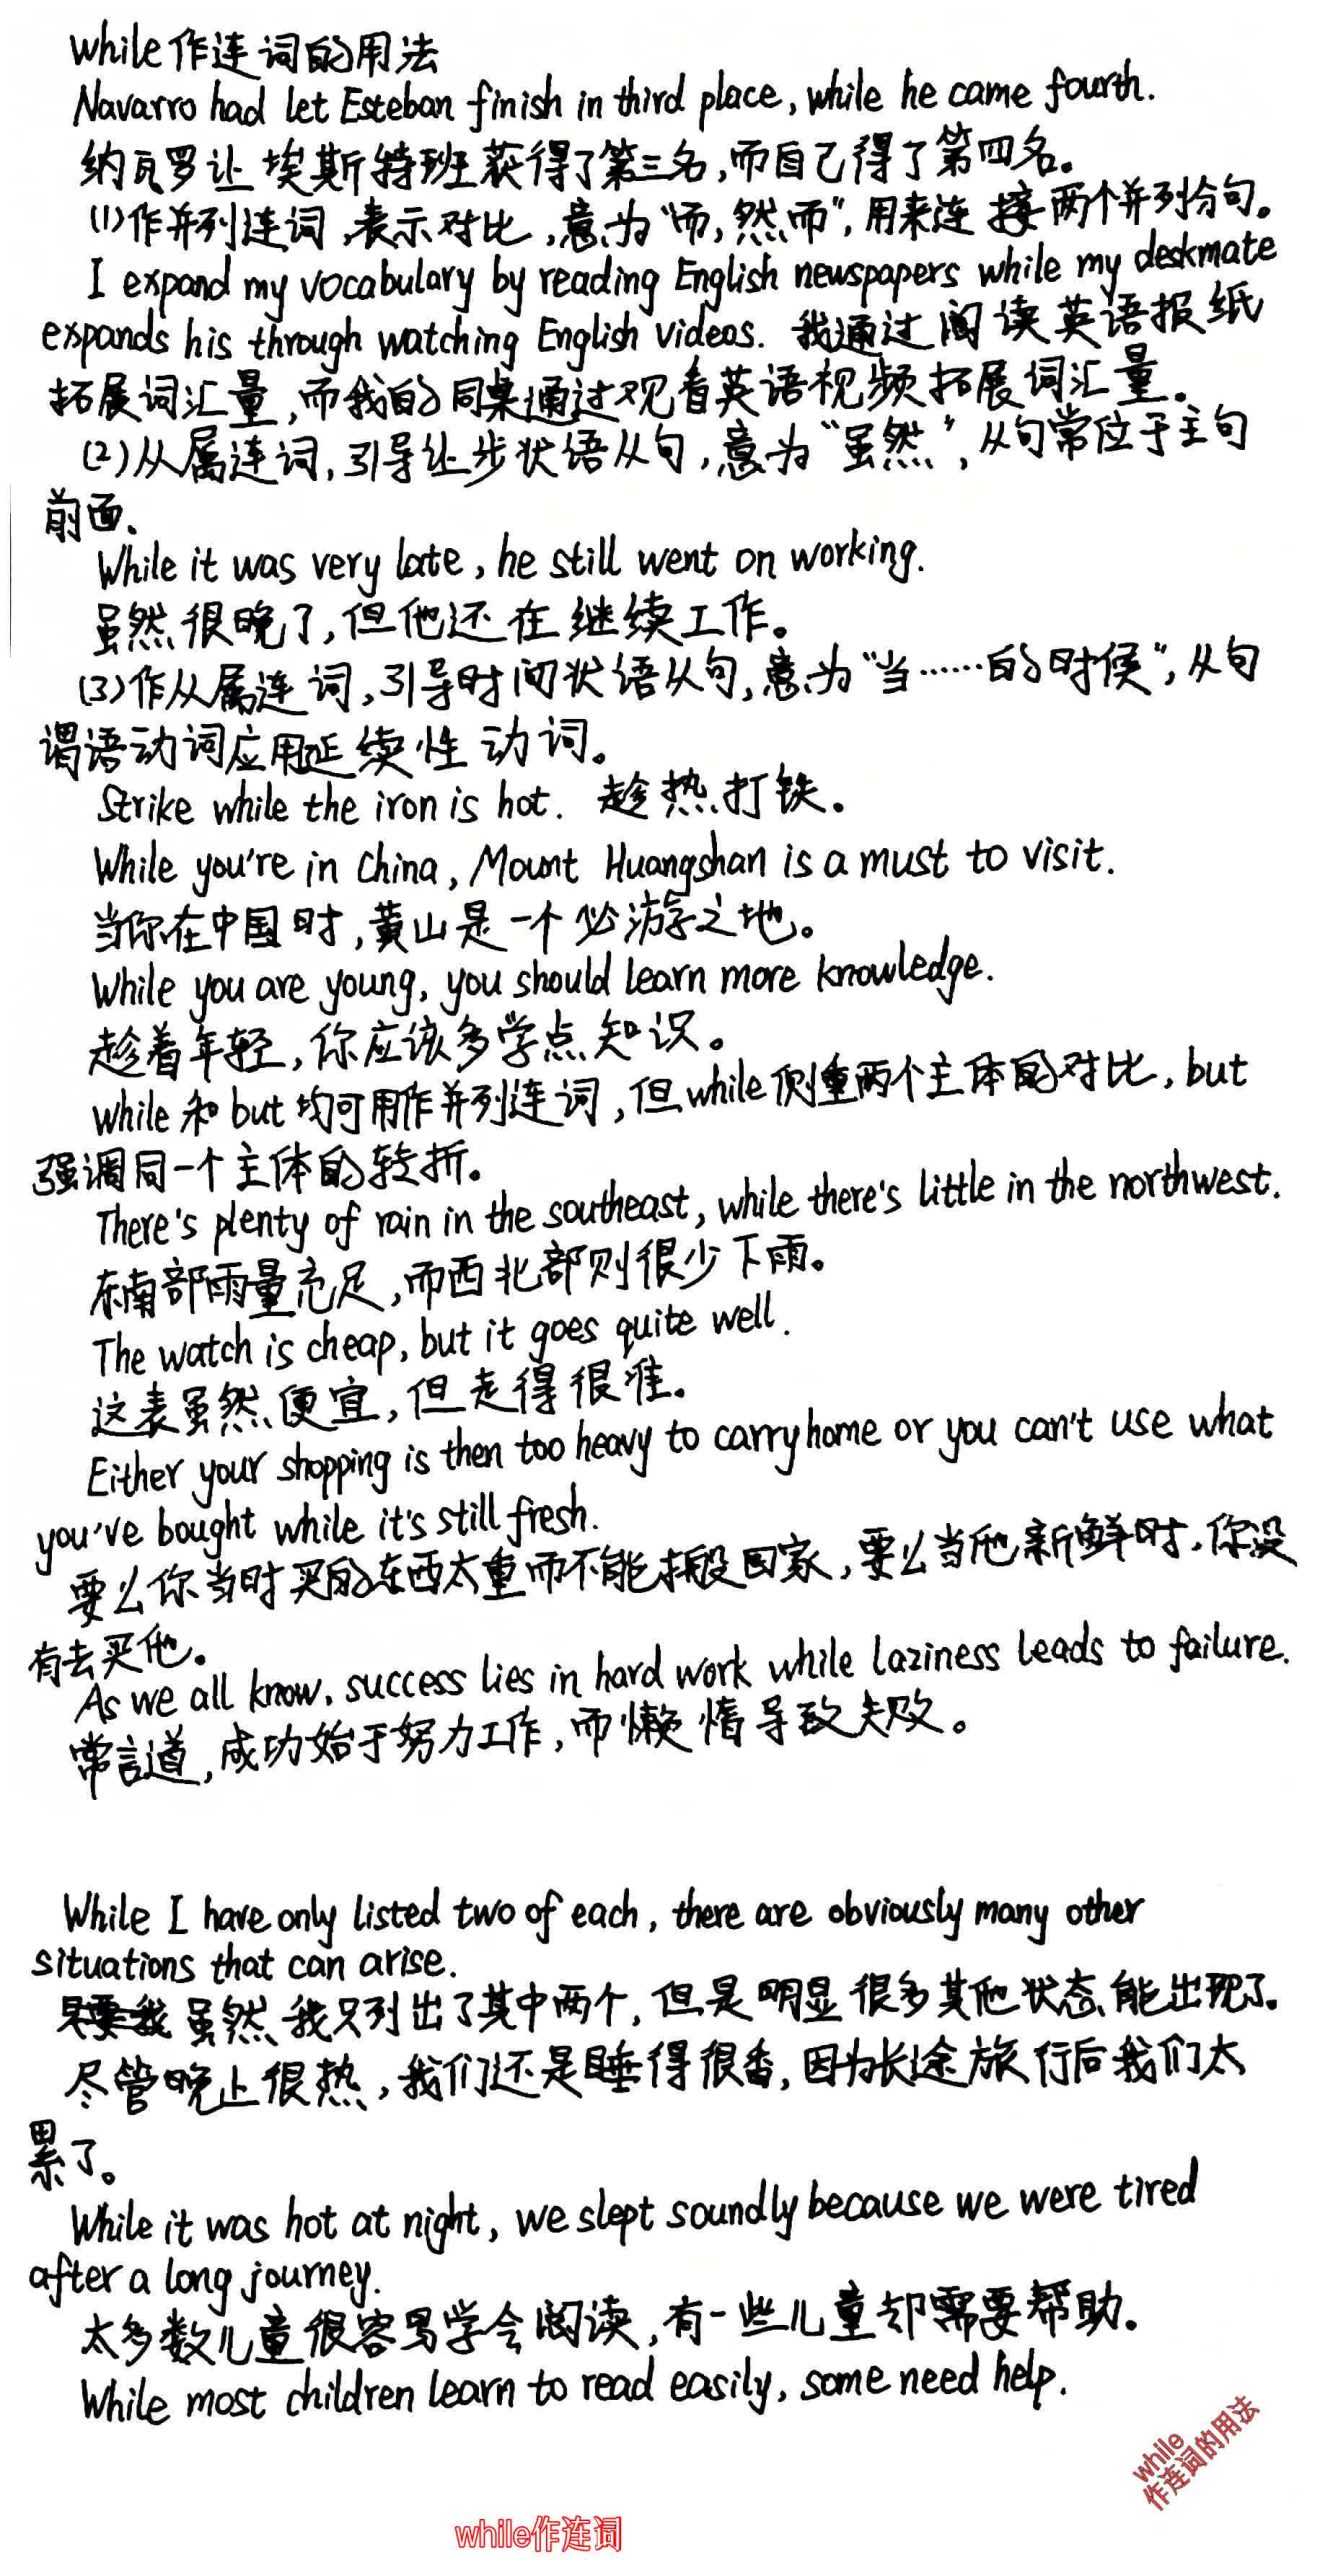 while作连词的用法
Navarro had let Esteban finish in third place, while he came fourth.
纳瓦罗让埃斯特班获得了第三名,而自己得了第四名。
(1)作并列连词,表示对比,意为“而,然而”,用来连接两个并列分句。
I expand my vocabulary by reading English newspapers while my deskmate
expands his through watching English videos. 我通过阅读英语报纸
拓展词汇量,而我的同桌通过观看英语视频拓展词汇量。
(2)从属连词,引导让步状语从句,意为“虽然”,从句常位于主句
前面、
While it was very late, he still went on working.
虽然很晚了,但他还在继续工作。
(3)作从属连词,引导时间状语从句,意为“当……的时候”,从句
谓语动词应用延续性动词。
Strike while the iron is hot. 趁热打铁。
While you're in China, Mount Huangshan is a must to visit.
当你在中国时,黄山是一个必游之地。
While you are young, you should learn more knowledge.
趁着年轻,你应该多学点知识。
while和but均可用作并列连词,但while侧重两个主体的对比,but
强调同一个主体的转折。
There's plenty of rain in the southeast, while there's little in the northwest.
东南部雨量充足,而西北部则很少下雨。
The watch is cheap, but it goes quite well.
这表虽然便宜,但走得很准。
Either your shopping is then too heavy to carry home or you can't use what
you've bought while it's still fresh.
要么你当时买的东西太重而不能搬回家,要么当他新鲜时,你没
有去买他。
As we all know, success lies in hard work while laziness leads to failure.
常言道,成功始于努力工作,而懒惰导致失败。
While I have only listed two of each, there are obviously many other
situations that can arise.
虽然我只列出了其中两个,但是明显很多其他状态能出现了。
尽管晚上很热,我们还是睡得很香,因为长途旅行后我们太
累了。
While it was hot at night, we slept soundly because we were tired
after a long journey.
太多数儿童很容易学会阅读,有一些儿童却需要帮助。
While most children learn to read easily, some need help.
while
作连词的用法
while作连词